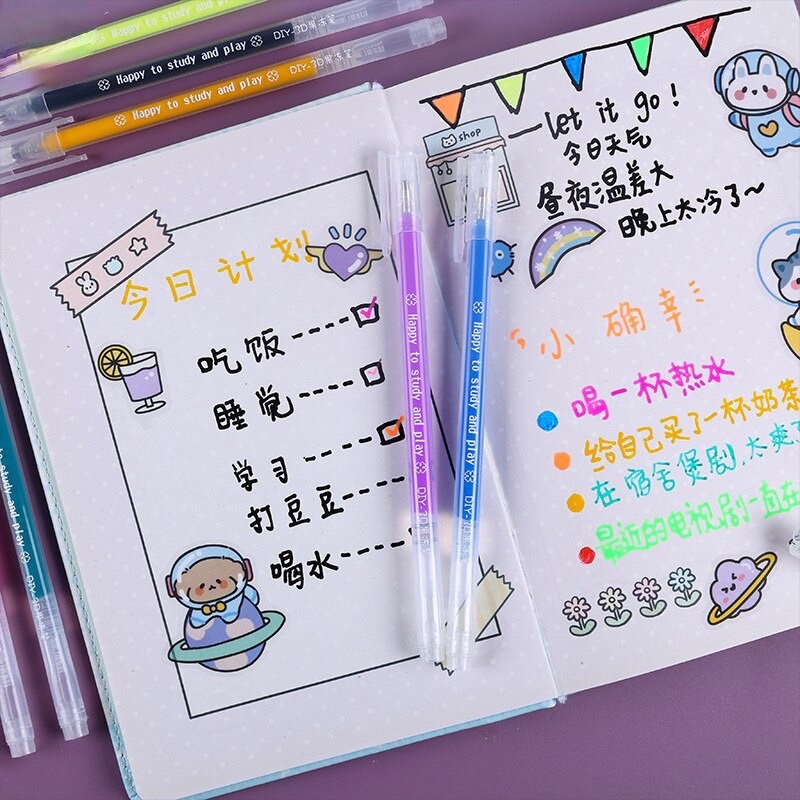 Happy to study and play
Happy to study and play DIY-3D果冻笔
Happy to study and play DIY-3D果冻笔
今日计划
吃饭
睡觉
学习
打豆豆
喝水
Happy to study and play DIY-3D果冻笔
Happy to study and play DIY-3D果冻笔
shop
let it go!
今日天气
昼夜温差大
晚上太冷了~
小确幸
喝一杯热水
给自己买了一杯奶茶
在宿舍煲剧,太爽了
最近的电视剧一直在
to study and play